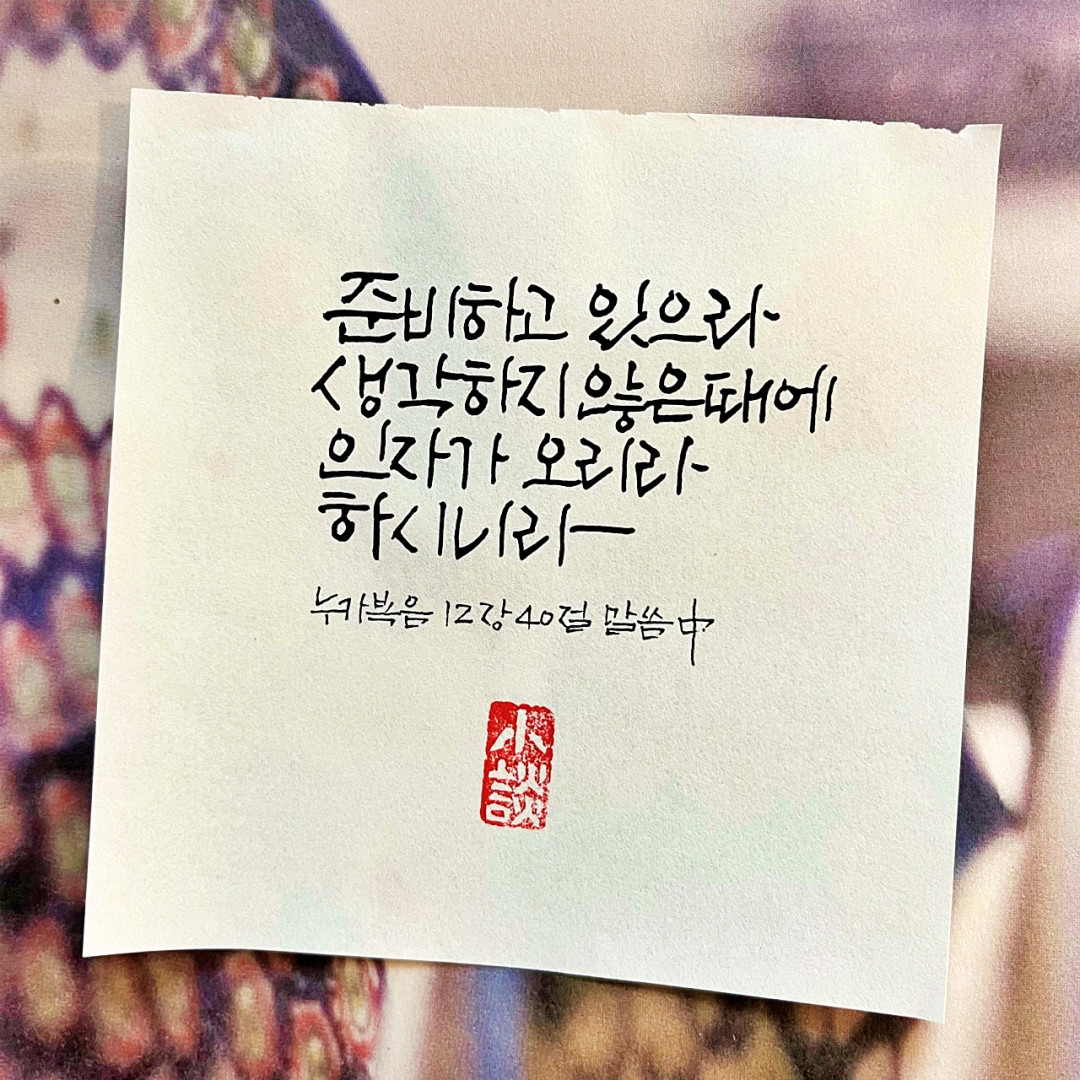 준비하고 있으라
생각하지 않은 때에
인자가 오리라
하시니라
누가복음 12장 40절 말씀 中
小談